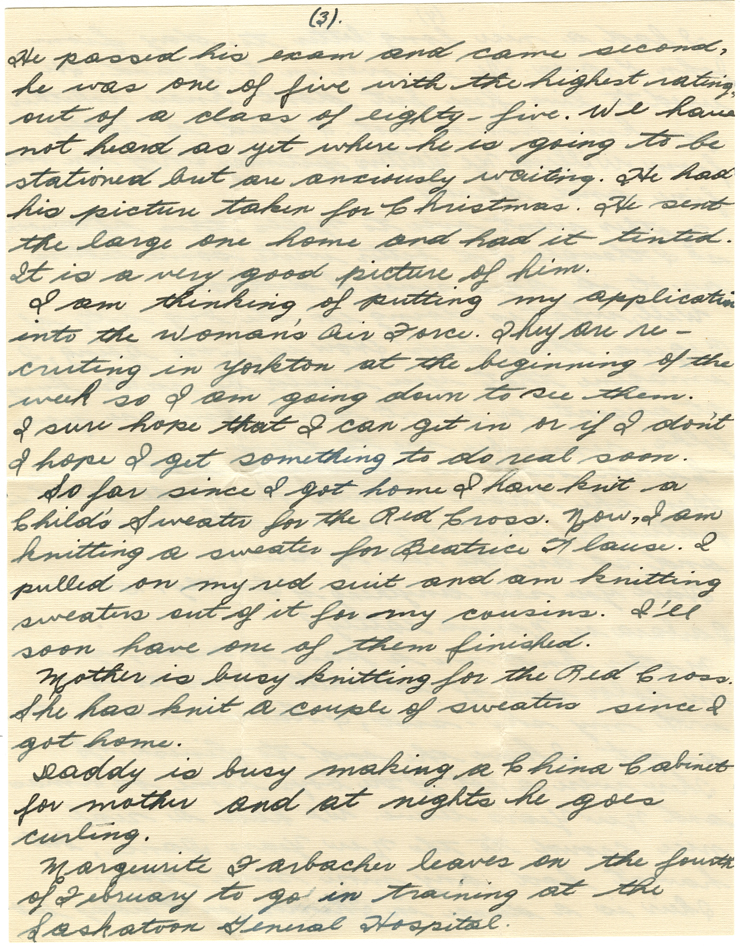 (3).
He passed his exam and came second,
he was one of five with the highest rating,
out of a class of eighty-five. We have
not heard as yet where he is going to be
stationed but are anciously waiting. He had
his picture taken for Christmas. He sent
the large one home and had it tinted.
It is a very good picture of him.
I am thinking of putting my application
into the Woman's Air Force. They are re-
cruting in Yorkton at the beginning of the
week so I am going down to see them.
I sure hope that I can get in or if I don't
I hope I get something to do real soon.
So far since I got home I have knit a
Child's Sweater for the Red Cross. Now, I am
knitting a sweater for Beatrice Flause. I
pulled on my red suit and am knitting
sweaters out of it for my cousins. I'll
soon have one of them finished.
Mother is busy knitting for the Red Cross.
She has knit a couple of sweaters since I
got home.
Daddy is busy making a China Cabinet
for mother and at nights he goes
curling.
Marguerite Farbacher leaves on the fourth
of February to go in training at the
Saskatoon General Hospital.